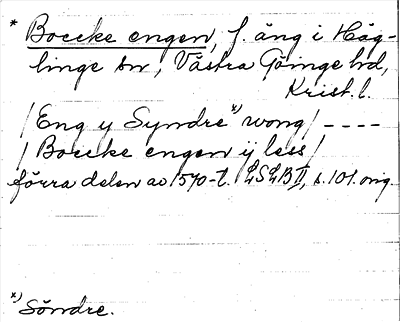 * Boecke engen, f. äng i Häg-
linge sn, Västra Göinge hd,
Krist. l.
/Eng y Syndre *) wong/ ----
/Boecke engen ij less/
förra delen av 1570-t. LSLB II, s. 101. orig.
*) Söndre.